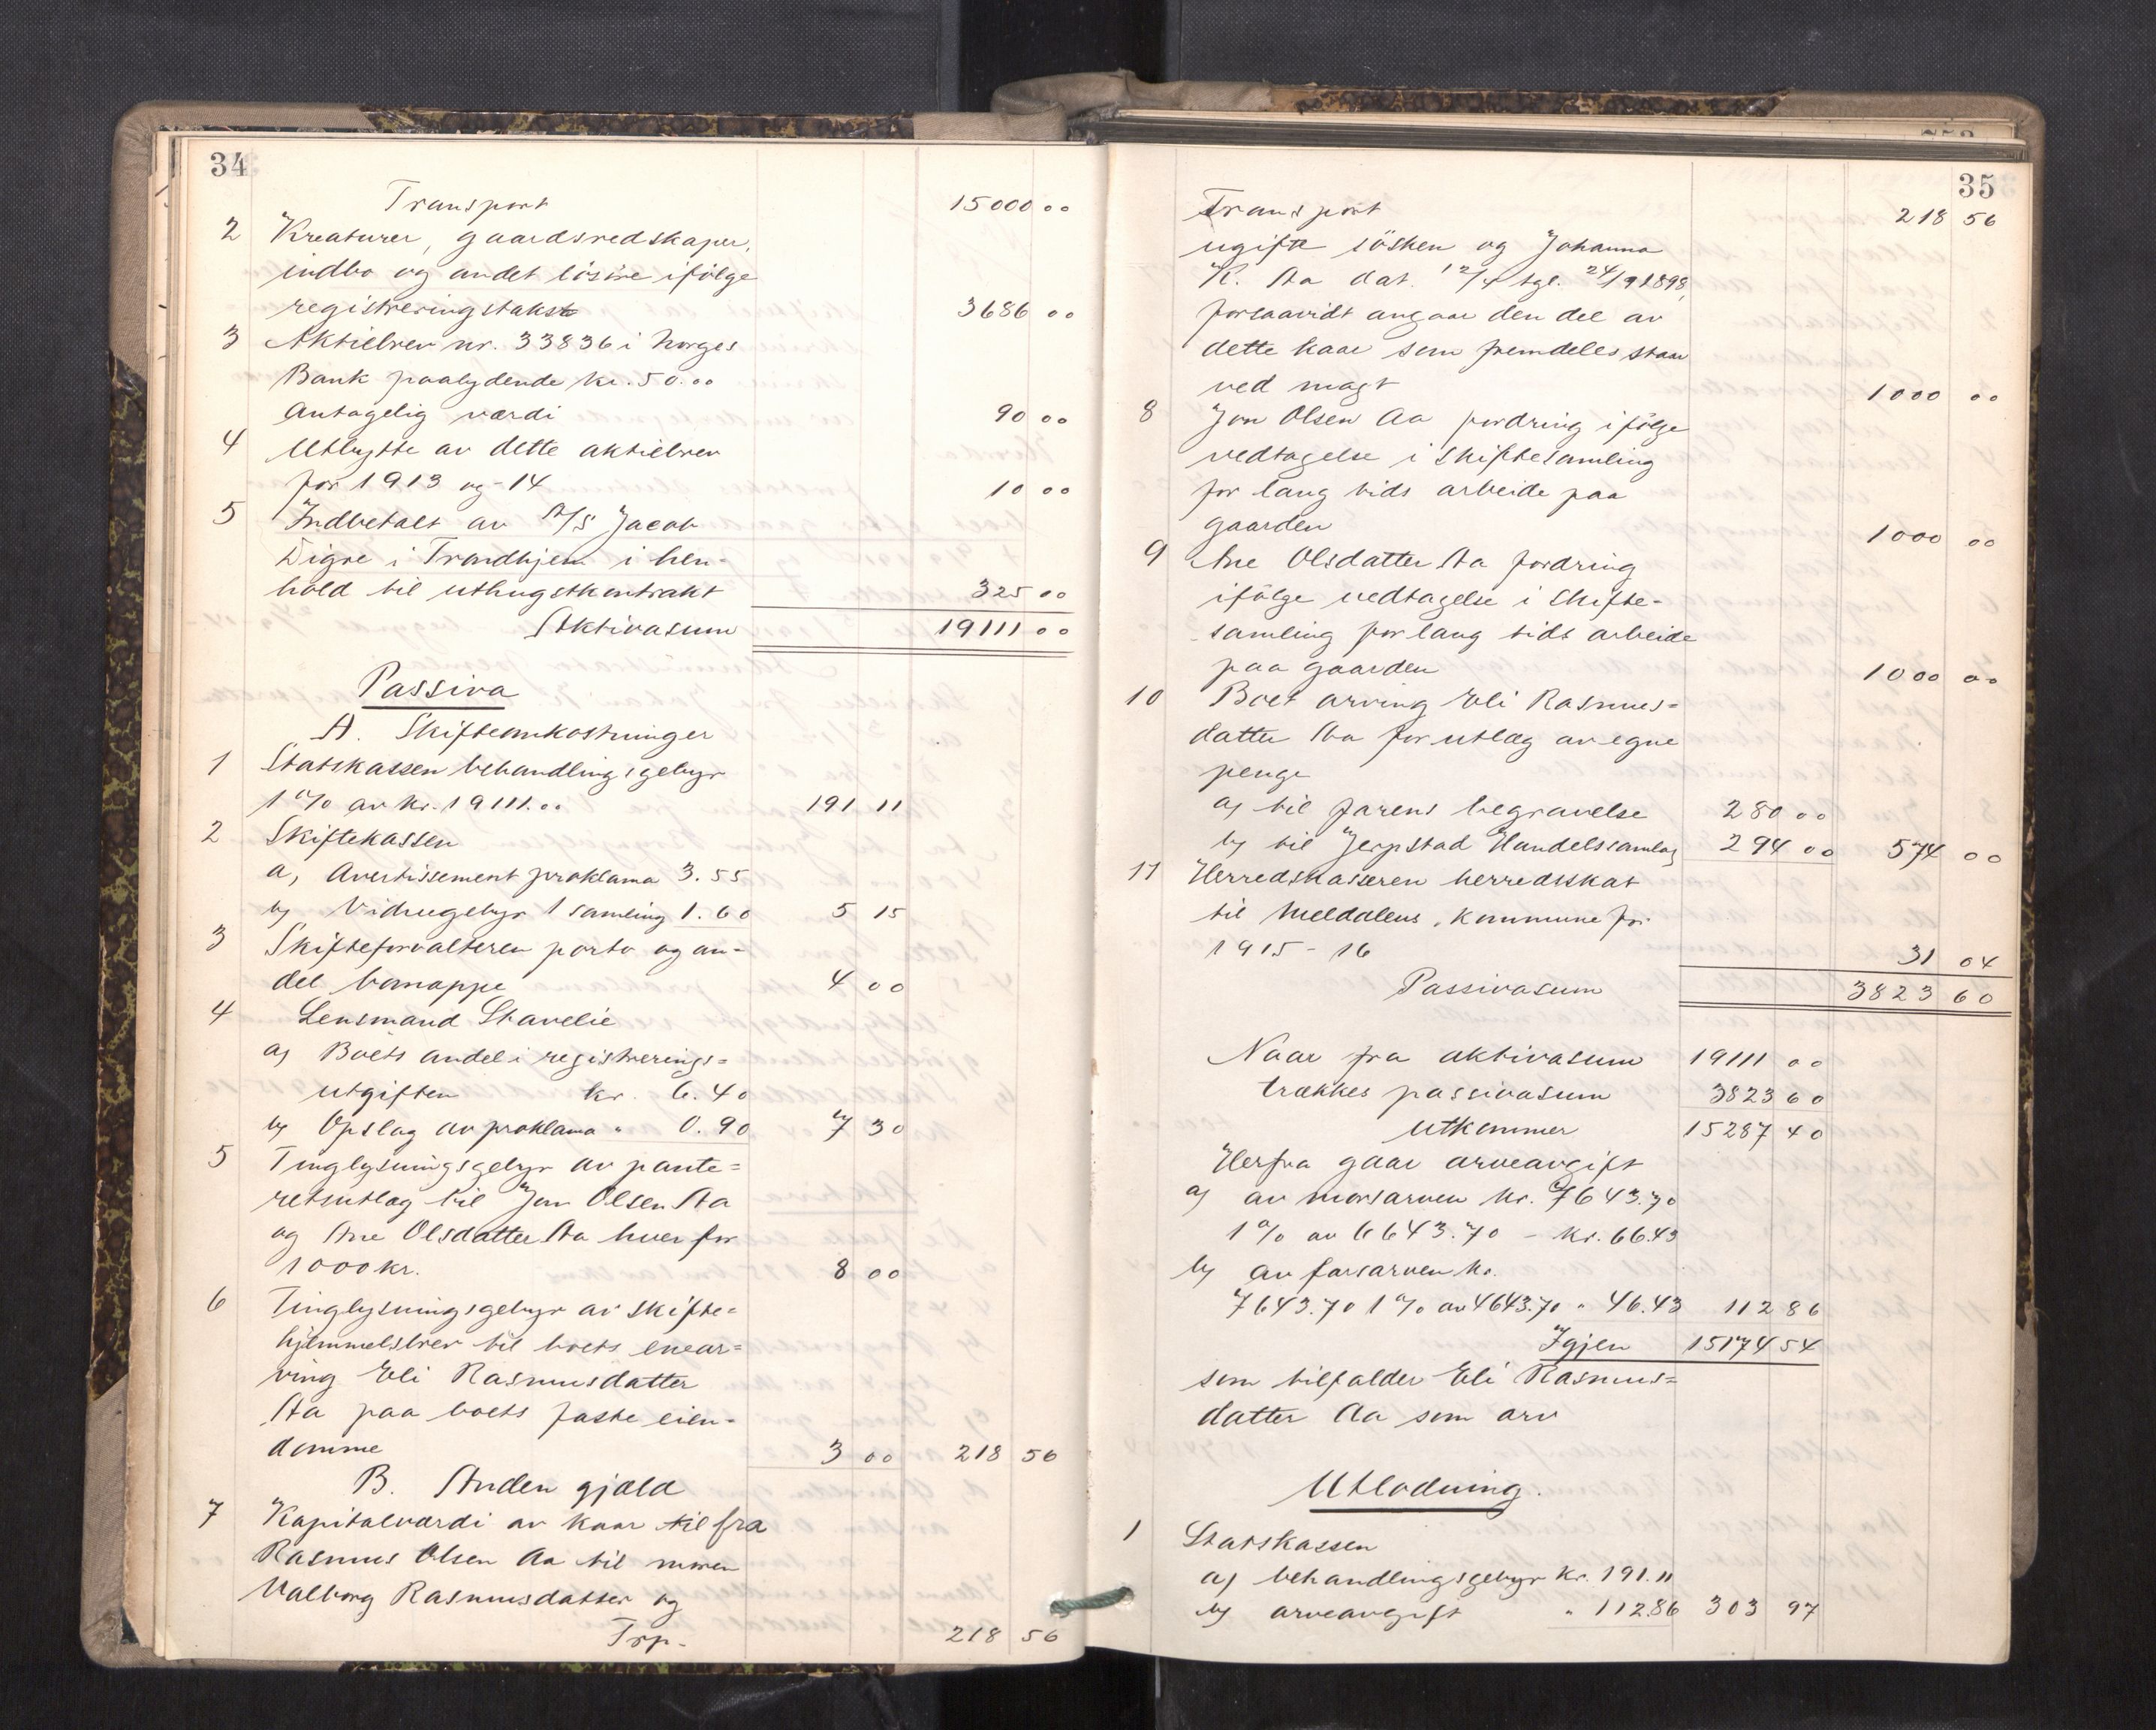 34
Transport 15000 00
2 Kreaturer, gaardsredskaper,
indbo og andet løsøre ifølge
registreringstakst 3686 00
3 Aktiebrev nr. 33836 i Norges
Bank paalydende kr. 50.00
Antagelig værdi 90 00
4 Utbytte av dette aktiebrev
for 1913 og -14 10 00
5 Indbetalt av A/S Jacob
Digre i Trondhjem i hen-
hold til uthugstkontrakt 325 00
Aktivasum 19111 00
Passiva
A. Skifteomkostninger
1 Statskassen behandlingsgebyr
1% av kr. 19111.00 191 11
2 Skiftekassen
a, Avertissement proklama 3.55
b, Vidnegebyr 1 samling 1.60 5 15
3 Skifteforvalteren porto og an-
del bomappe 4 00
4 Lensmand Stavelie
a, Boets andel i registrerings=
utgiften kr. 6.40
b, Opslag av proklama " 0.90 7 30
5 Tinglysningsgebyr av pante=
retsutlæg til Jon Olsen Aa
og Ane Olsdatter Aa hver for
1000 kr. 8 00
6 Tinglysningsgebyr av skifte=
hjemmelsbrev til boets enear=
ving Eli Rasmusdatter
Aa paa boets faste eien-
domme 3 00 218 56
B. Anden gjæld
7 Kapitalværdi av kaar til fra
Rasmus Olsen Aa til moren
Valborg Rasmusdatter og
Trp. 218 56
35
Transport 218 56
ugifte søsken og Johanna
K. Aa dat. 12/4 tgl. 24/9 1898,
forsaavidt angaar den del av
dette kaar som fremdeles staar
ved magt 1000 00
8 Jon Olsen Aa fordring ifølge
vedtagelse i skiftesamling
for lang tids arbeide paa
gaarden 1000 00
9 Ane Olsdatter Aa fordring
ifølge vedtagelse i skifte-
samling for lang tids arbeide
paa gaarden 1000 00
10 Boet arving Eli Rasmus=
datter Aa for utlæg av egne
penge
a, til farens begravelse 280 00
b, til Jerpstad Handelssamlag 294 00 574 00
11 Herredskasseren herredsskat
til Meldalens kommune for
1915-16 31 04
Passivasum 3823 60
Naar fra aktivasum 19111 00
trækkes passivasum 3823 60
utkommer 15287 40
Herfra gaar arveavgift
a, av morsarven kr. 7643.70
1% av 6643.70 - kr. 66.43
b, av farsarven kr.
7643.70 1% av 4643.70 " 46.43 112 86
Igjen 15174 54
som tilfalder Eli Rasmus=
datter Aa som arv
Utlodning.
1 Statskassen
a, behandlingsgebyr kr. 191.11
b, arveavgift " 112.86 303 97